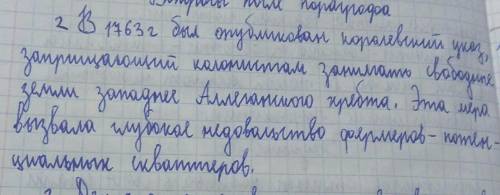 Вопросы после параграфа
2 В 1763 г был опубликован королевский указ,
заприщающий колонистам занимать свободные
земли западнее Аллеганского хребта. Эта мера
вызвала глубокое недовольство фермеров-потен-
циальных скваттеров.